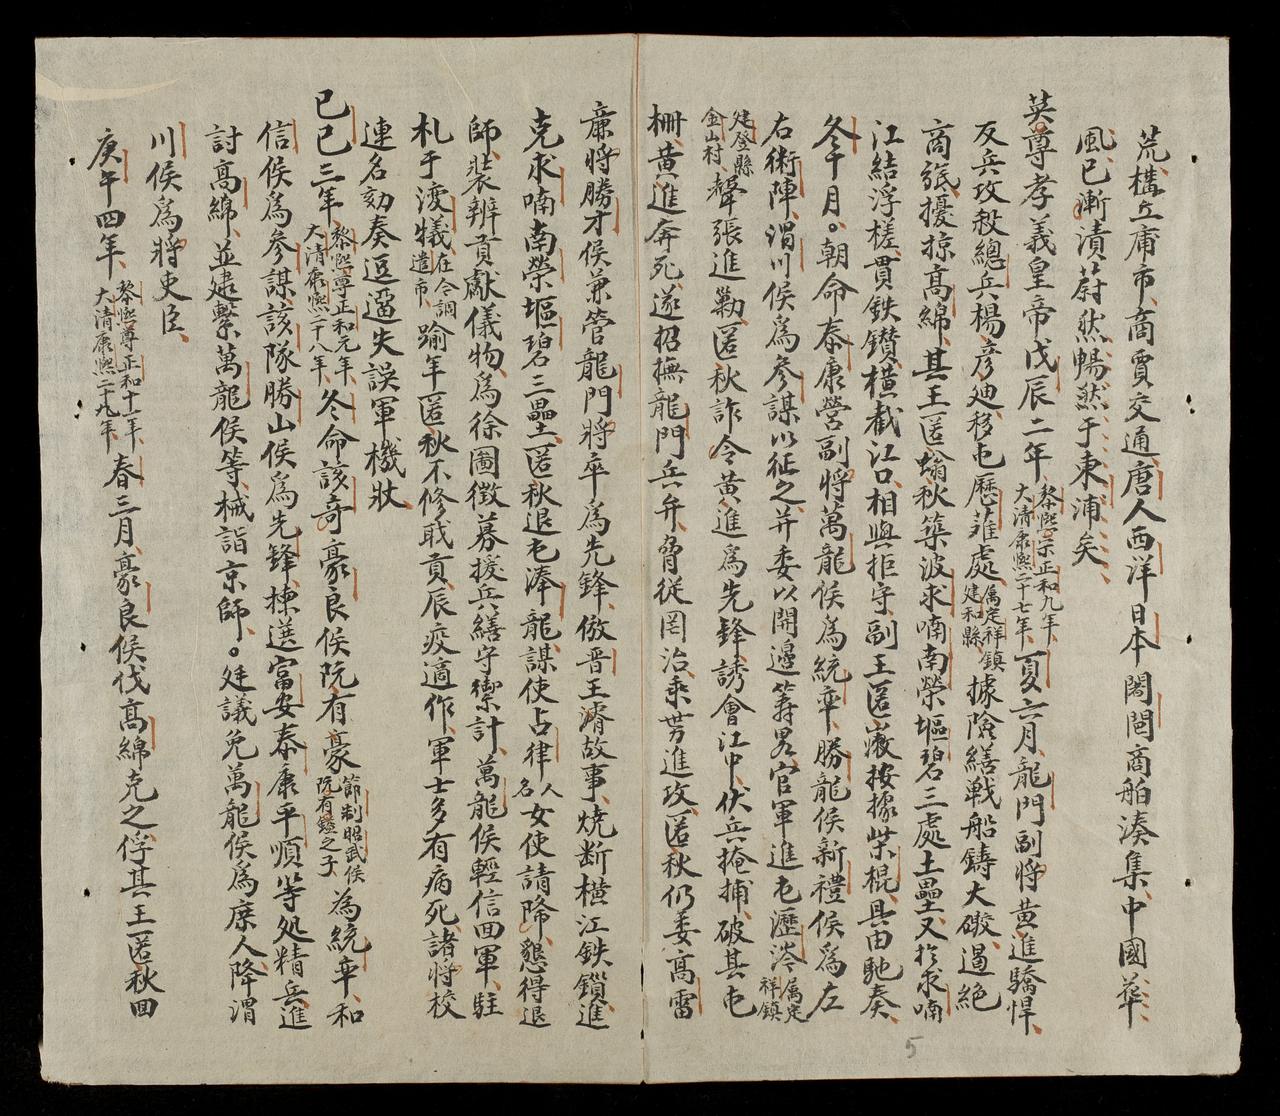 荒構立庸市商賈交通唐人西洋日本闍閭商舶湊集中國華
風已漸漬蔚然暢然于東浦矣
英尊孝義皇帝戊辰二年黎熙宗正和九年大清康熙二十七年夏六月龍門副將黃進驕悍
反兵攻殺總兵楊彥迪移屯歷蓷處属定祥鎮建和縣據險繕戰船鑄大礮遏絕
商氓擾掠高綿其王匿螉秋築波求喃南榮塸碧三處土壘又於求喃
江結浮槎貫鉄鑽橫截江口相與拒守副王匿㴜按據柴棍具由馳奏
冬十月朝命泰康營副將萬龍侯為統率勝龍侯新禮侯為左
右衛陣渭川侯為參謀以征之并委以開邊籌畧官軍進屯瀝涔属定祥鎮
建登縣金山村聲張進勦匿秋詐令黃進為先鋒誘會江中伏兵掩捕破其屯
柵黃進奔死遂招撫龍門兵弁脅從罔治乘勞進攻匿秋仍委高雷
廉將勝才侯兼管龍門將卒為先鋒倣晋王濬故事燒斷橫江鉄鎖進
克求喃南榮塸碧三壘匿秋退屯湊龍謀使占律人名女使請降懇得退
師裝辨貢獻儀物為徐圖徵募援兵繕守禦計萬龍侯輕信回軍駐
札于渡犧在今調遣市踰年匿秋不修職貢辰疫適作軍士多有病死諸將校
連名劾奏逗遛失誤軍機狀
己巳三年黎熙尊正和元年大清康熙二十八年冬命該奇豪良侯阮有豪節制昭武侯阮有鎰之子為統率和
信侯為參謀該隊勝山侯為先鋒揀選富安泰康平順等処精兵進
討高綿並建繫萬龍侯等械詣京師廷議免萬龍侯為庶人降渭
川侯為將吏臣
庚午四年黎熙尊正和十一年大清康熙二十九年春三月豪良侯伐高綿克之俘其王匿秋回
5